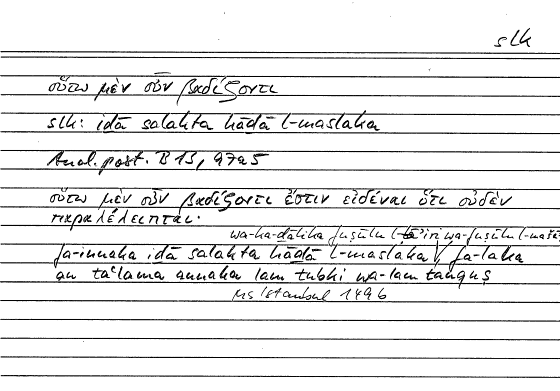 slk
οὕτω μὲν οὖν βαδίζοντι
slk: iḏā salakta hāḏā l-maslaka
Anal. post. B 13, 97a5
οὕτω μὲν οὖν βαδίζοντι ἔστιν εἰδέναι ὅτι οὐδὲν
παραλέλειπται·
wa-ka-ḏālika fuṣūlu wa-fuṣūlu
fa-innaka iḏā salakta hāḏā l-maslaka fa-laka
an taʿlama annaka lam tubḳi wa-lam tanquṣ
Ms Istanbul 1496